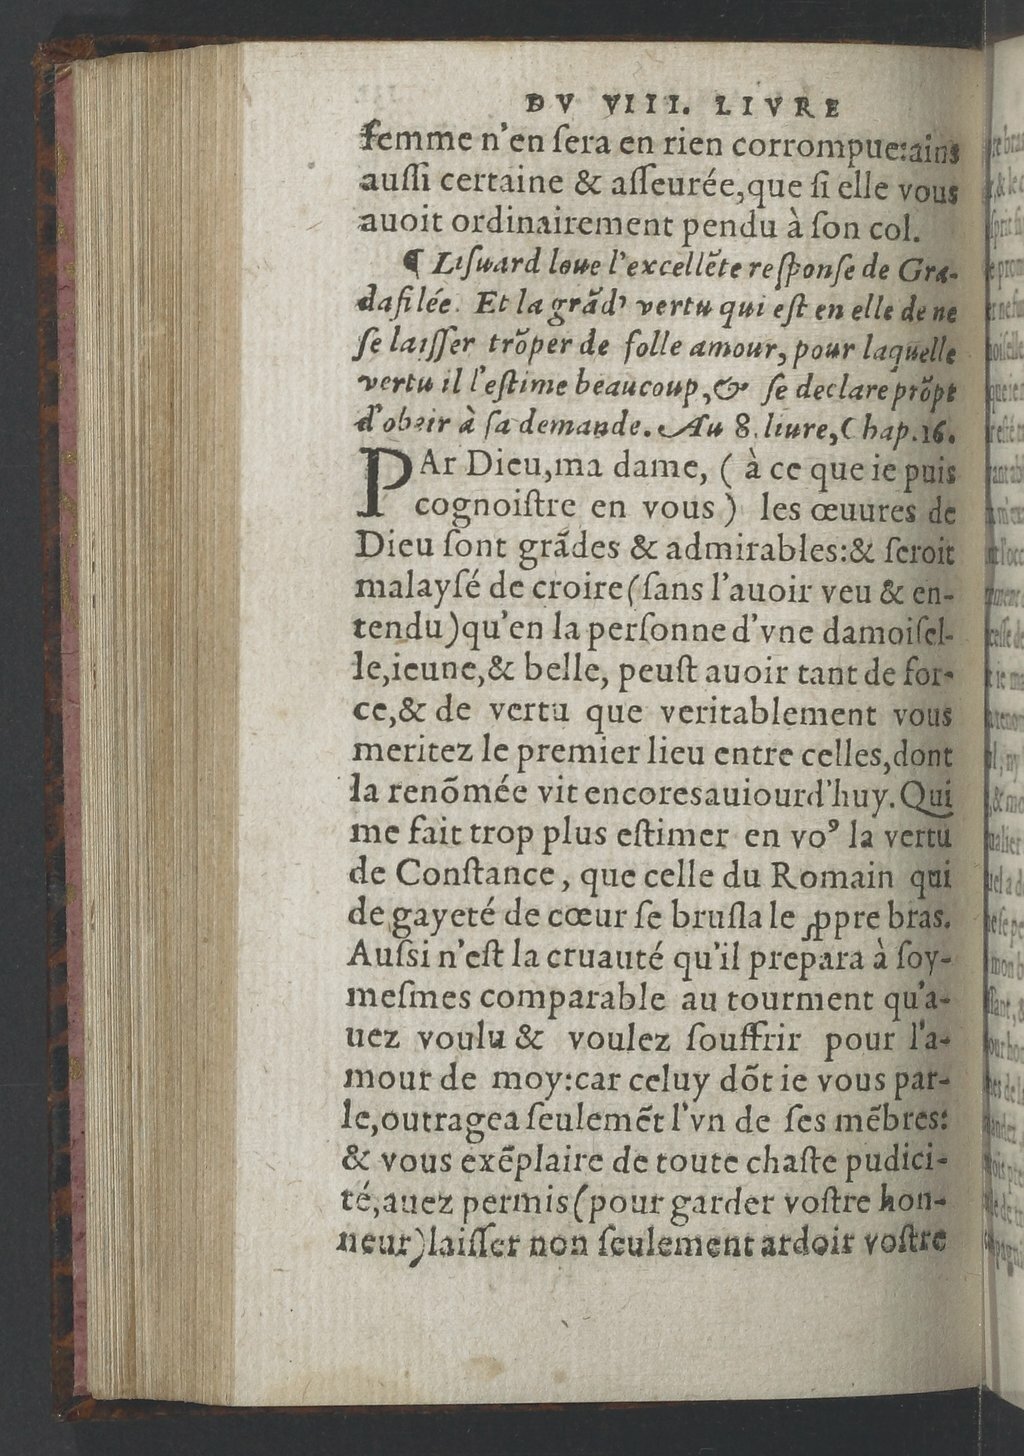 DV VIII. LIVRE
femme n'en ſera en rien corrompue:ains
auſſi certaine & aſſeurée,que ſi elle vous
auoit ordinairement pendu à ſon col.
¶ Liſuard loue l'excellẽte reſponſe de Gra-
dafilée. Et la grãd' vertu qui eſt en elle de ne
ſe laiſſer trõper de folle amour, pour laquelle
vertu il l'eſtime beaucoup,& ſe declare prõpt
d'obeir à ſa demande. Au 8. liure, Chap.16.
PAr Dieu,ma dame, ( à ce que ie puis
cognoiſtre en vous ) les œuures de
Dieu ſont grãdes & admirables:& ſeroit
malayſé de croire (ſans l'auoir veu & en-
tendu)qu'en la perſonne d'vne damoiſel-
le,ieune,& belle, peuſt auoir tant de for-
ce,& de vertu que veritablement vous
meritez le premier lieu entre celles,dont
la renõmée vit encores auiourd'huy. Qui
me fait trop plus eſtimer en vo⁹ la vertu
de Conſtance, que celle du Romain qui
de gayeté de cœur ſe bruſla le ꝓpre bras.
Auſsi n'eſt la cruauté qu'il prepara à ſoy-
meſmes comparable au tourment qu'a-
uez voulu & voulez ſouffrir pour l'a-
mour de moy:car celuy dõt ie vous par-
le,outragea ſeulemẽt l'vn de ſes mẽbres:
& vous exẽplaire de toute chaſte pudici-
té,auez permis (pour garder voſtre hon-
neur)laiſſer non ſeulement ardoir voſtre